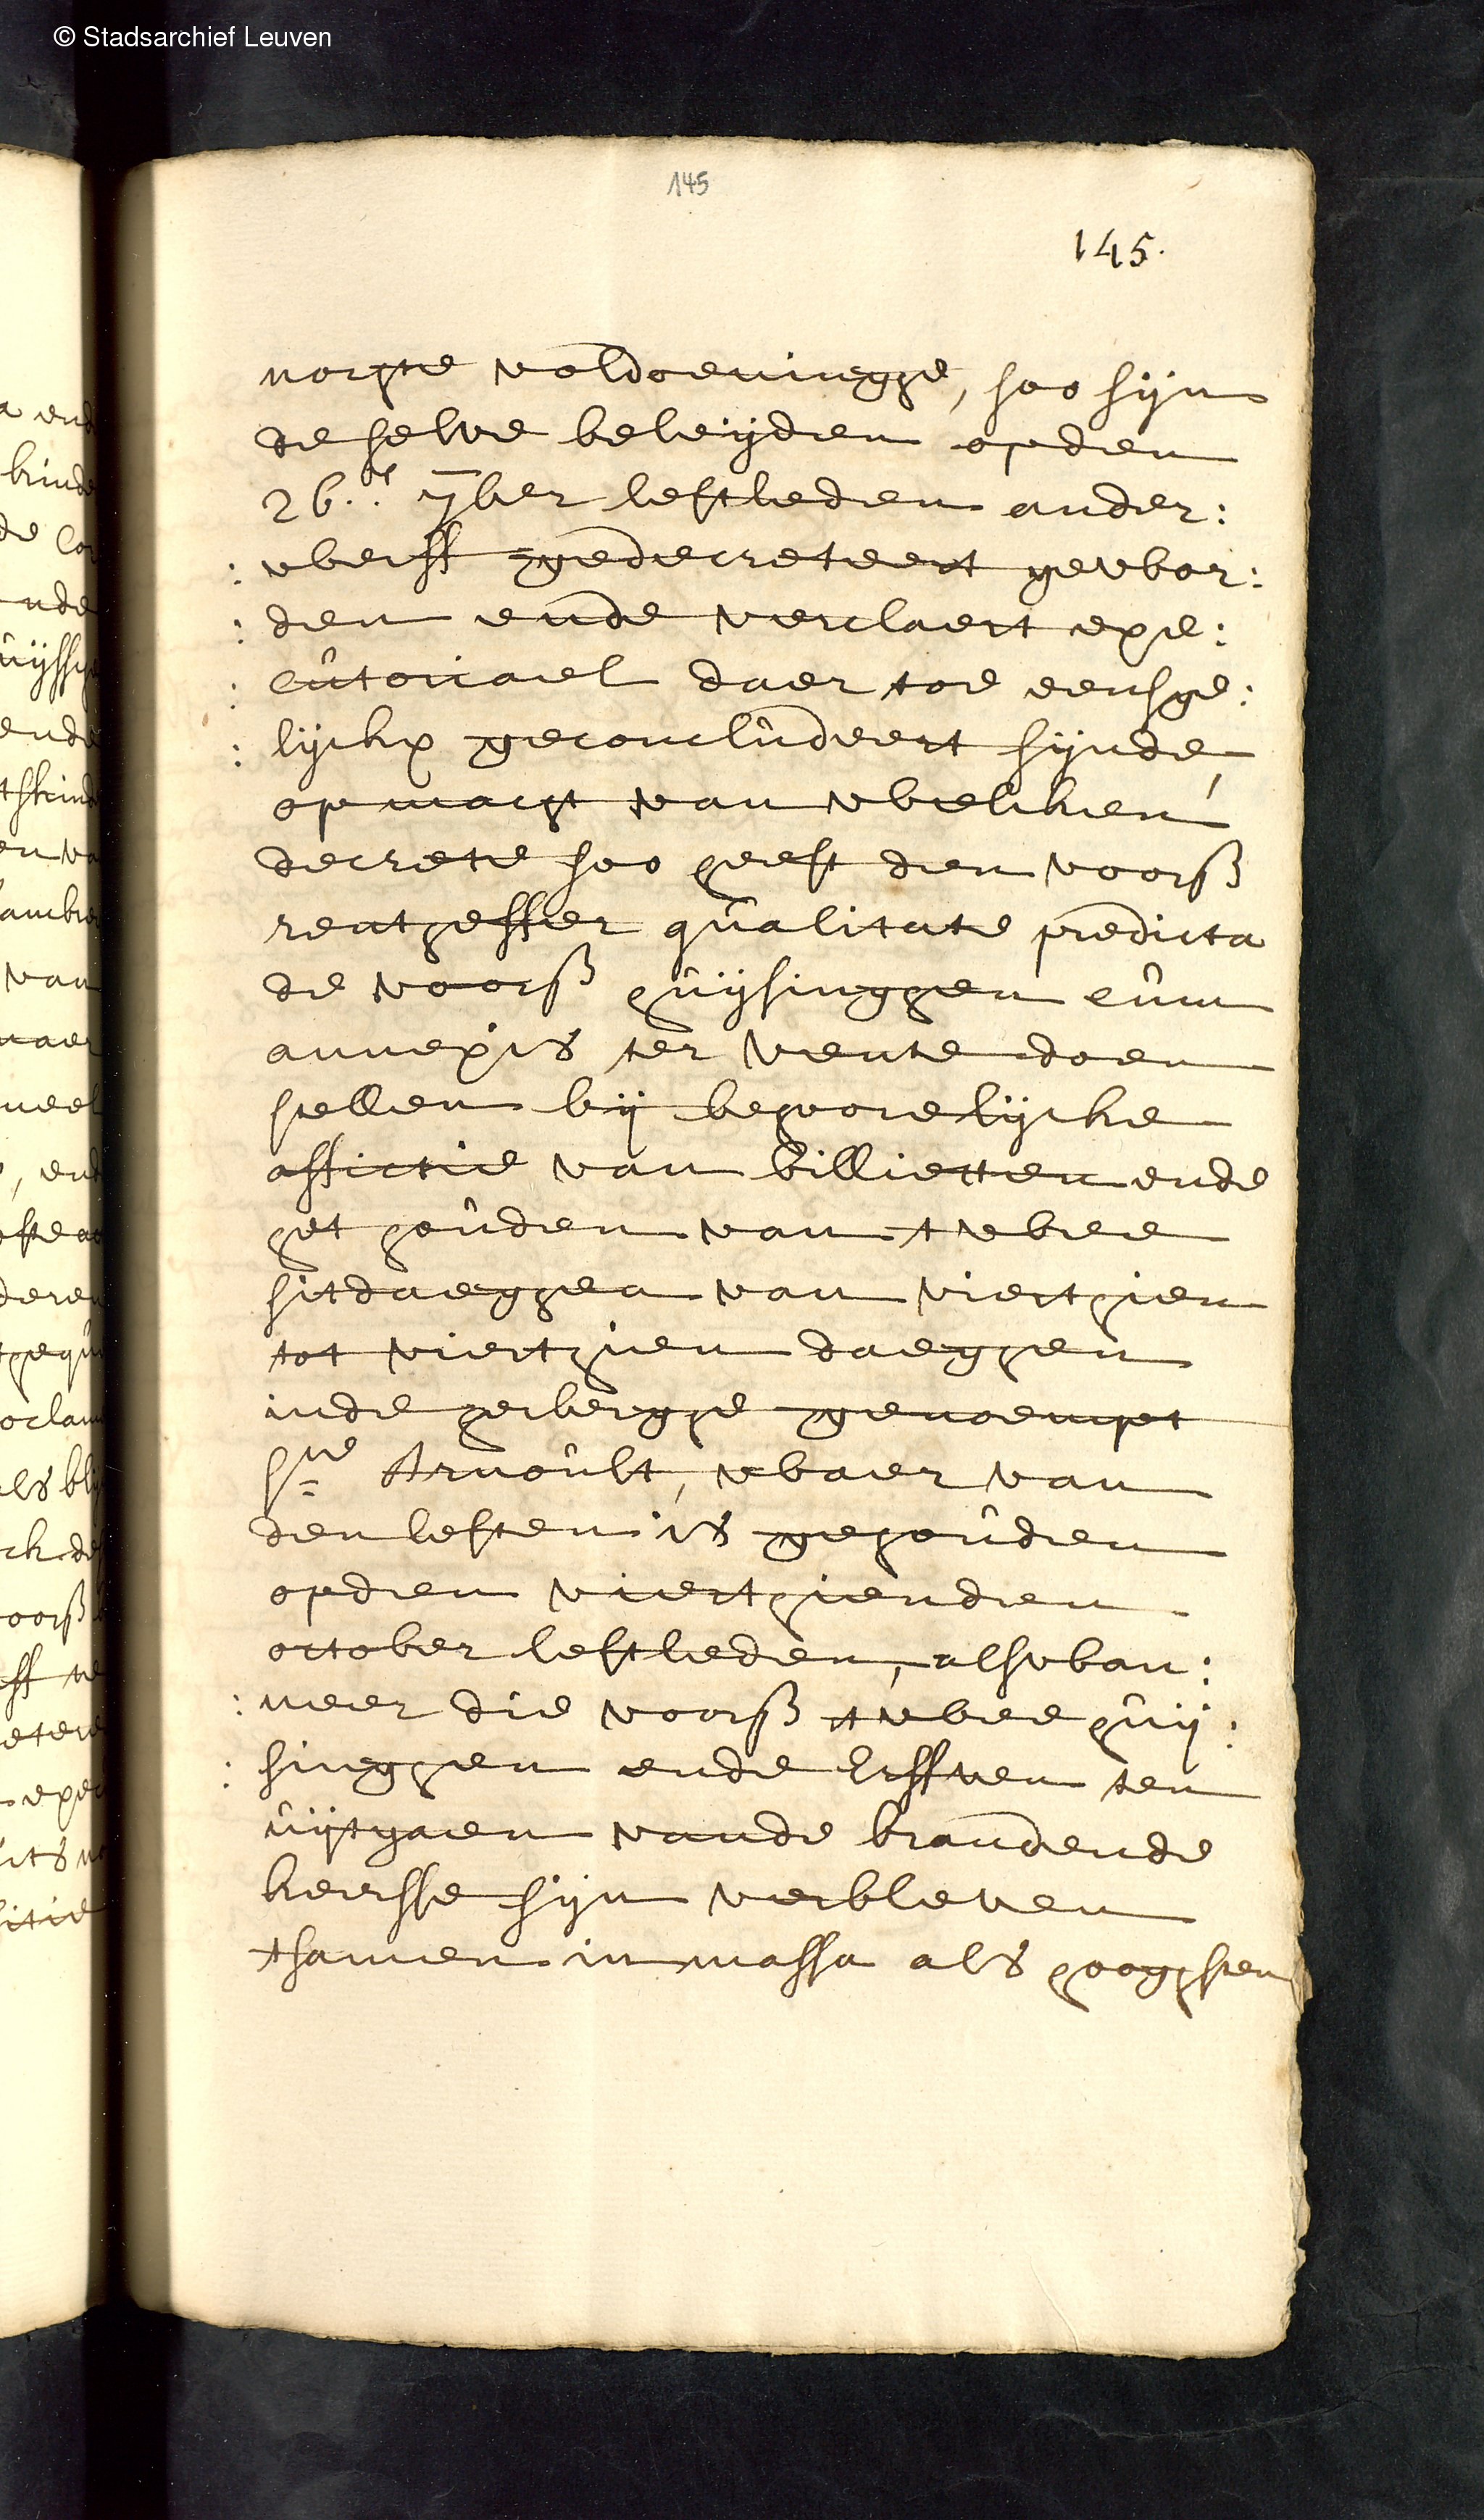 © Stadsarchief Leuven
145
145.
nochte voldoeninghe, soo sijn
de selve beleijden opden
26.e 7ber lestleden ander:
: werff gedecreteert gewor:
: den ende verclaert exe:
: cûtoriael daer toe eensge:
: lijckx geconclûdeert sijnde,
op macht van welcken
decrete soo heeft den voors
rentheffer qûalitate predicta
de voors hûijsinghen cûm
annexis ter vente doen
stellen bij behoorelijcke
affictie van billietten ende
het hoûden van twee
sitdaeghen van vierthien
tot vierthien daeghen
inde herberghe genoempt
Ste Arnoûlt, waer van
den lesten is gehoûden
opden vierthienden
october lestleden, alswan:
: neer die voors twee hûij:
: singhen ende Erffven ten
ûijtgaen vande brandende
keersse sijn verbleven
tsamen in massa als hooghsten